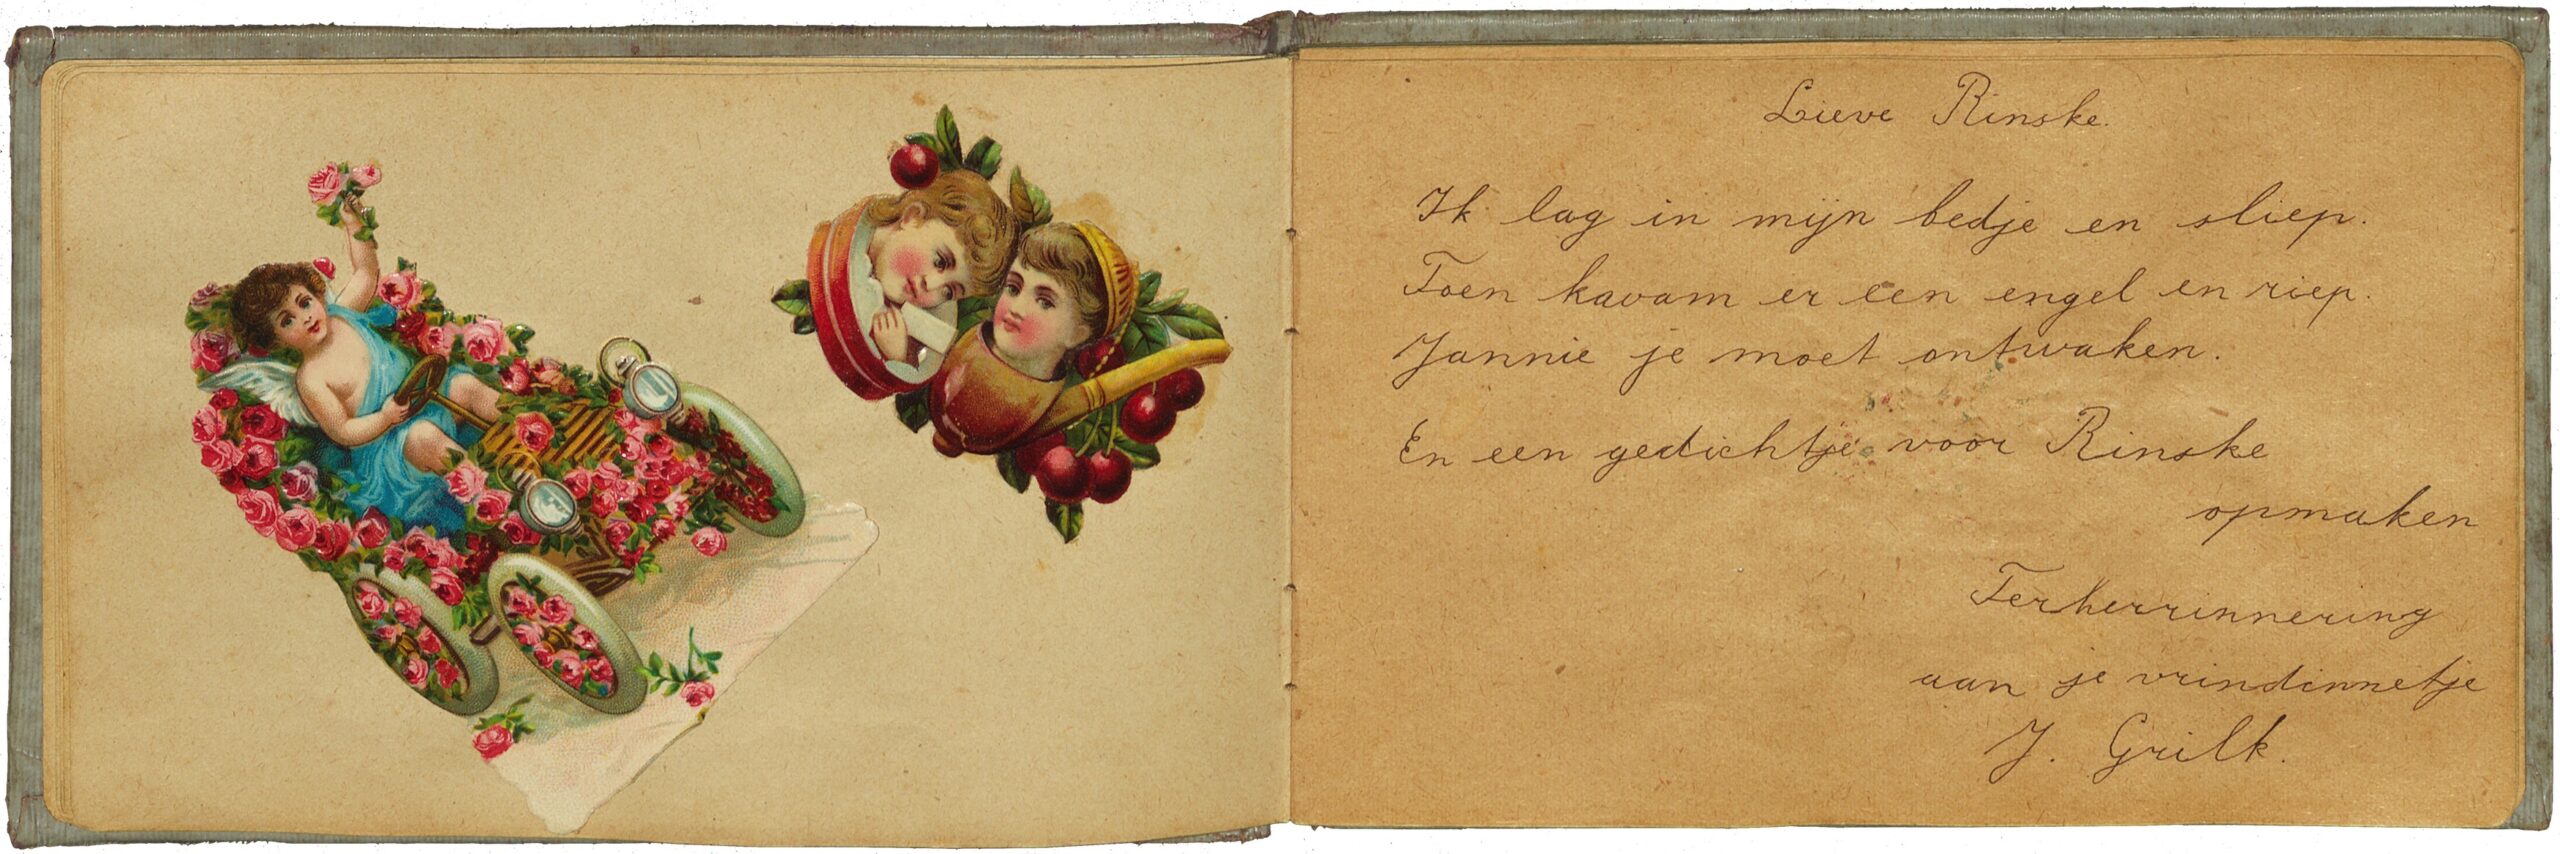 Lieve Rinske.
Ik lag in mijn bedje en sliep.
Toen kwam er een engel en riep.
Jannie je moet ontwaken.
En een gedichtje voor Rinske
opmaken
Ter herrinnering
aan je vrindinnetje
J. Grilk.